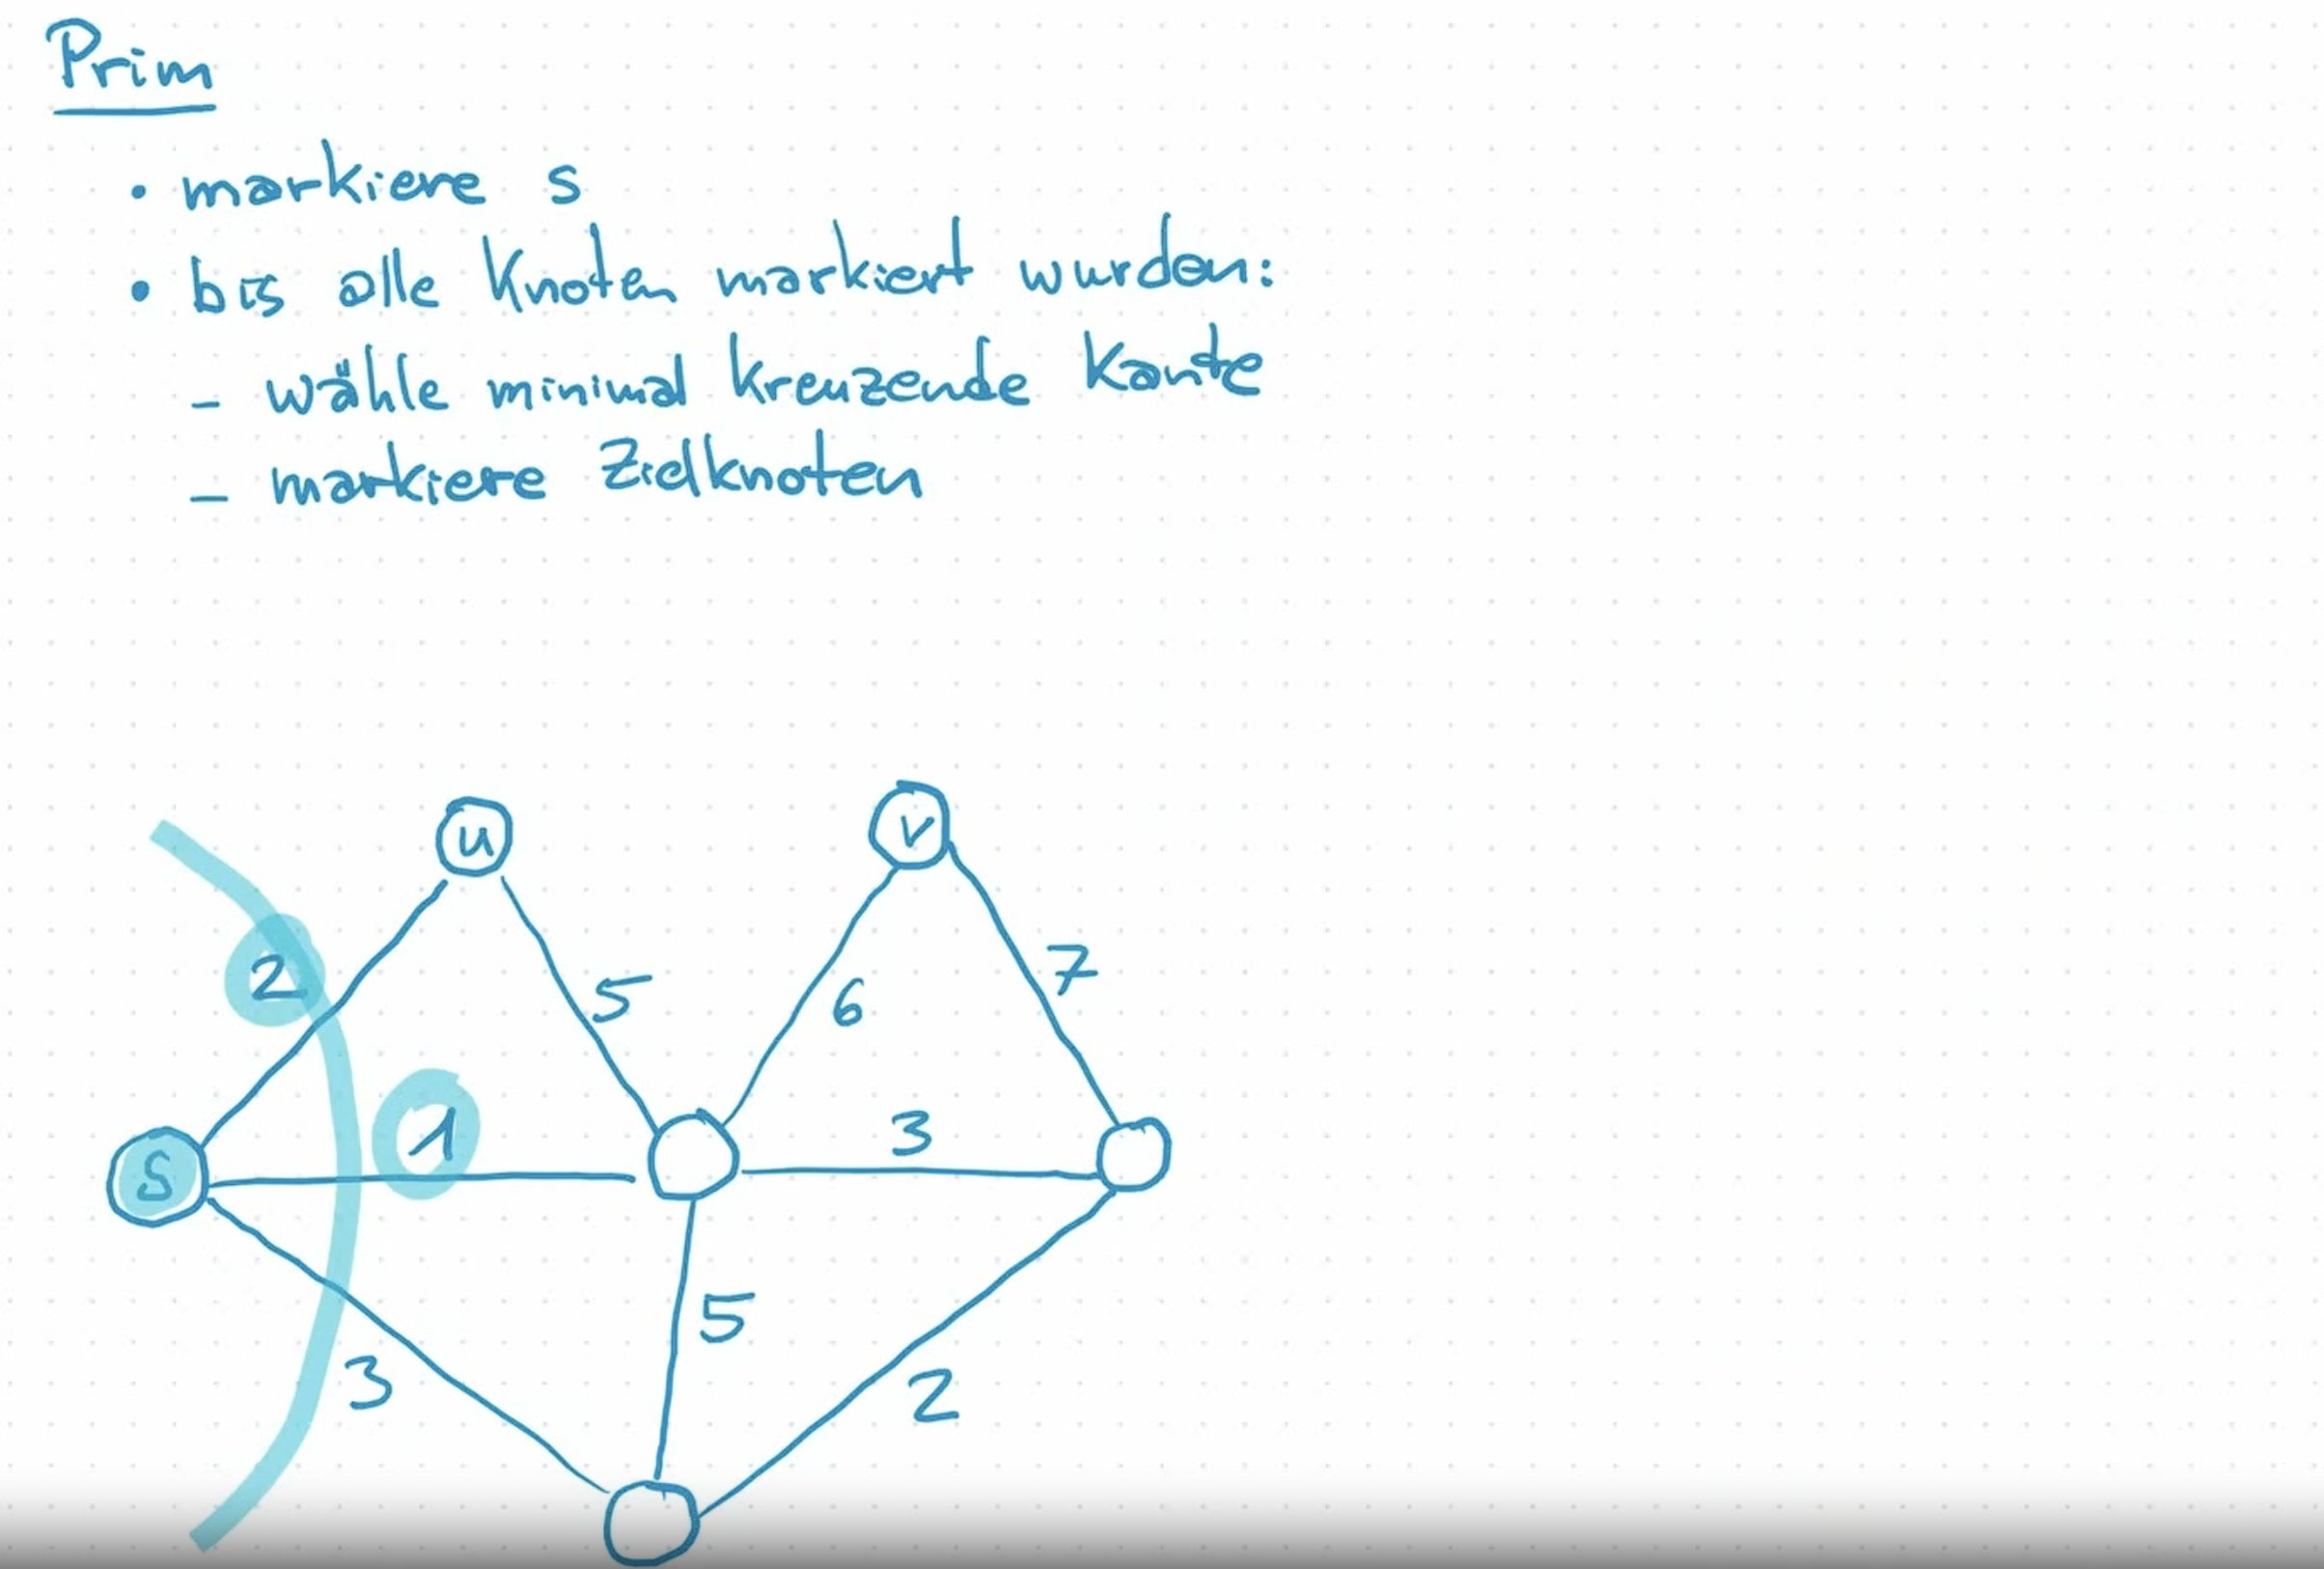 Prim
• markiere s
• bis alle Knoten markiert wurden:
– wähle minimal kreuzende Kante
– markiere Zielknoten
u
v
2
5
6
7
1
3
s
5
3
2